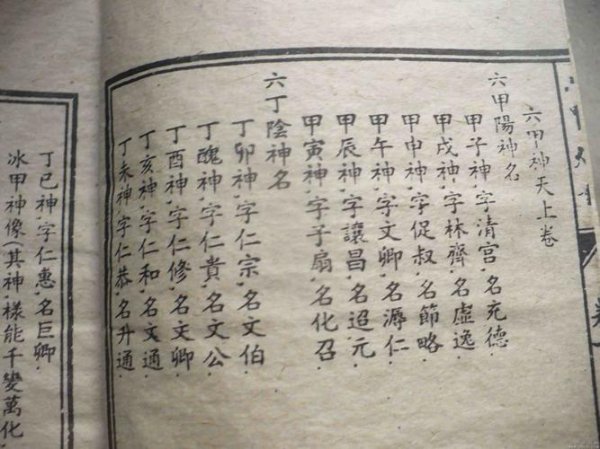 六甲神天上卷
六甲陽神名
甲子神.字清宫.名充德
甲戌神.字林齊.名虛逸
甲申神.字促叔.名節略
甲午神.字文卿.名溽仁
甲辰神.字讓昌.名迢元
甲寅神.字子扇.名化召
六丁陰神名
丁卯神.字仁宗.名文伯
丁醜神.字仁貴.名文公
丁酉神.字仁修.名文卿
丁亥神.字仁和.名文通
丁未神.字仁恭.名升通
丁巳神.字仁惠.名巨卿.
冰甲神像(其神.樣能千變萬化.